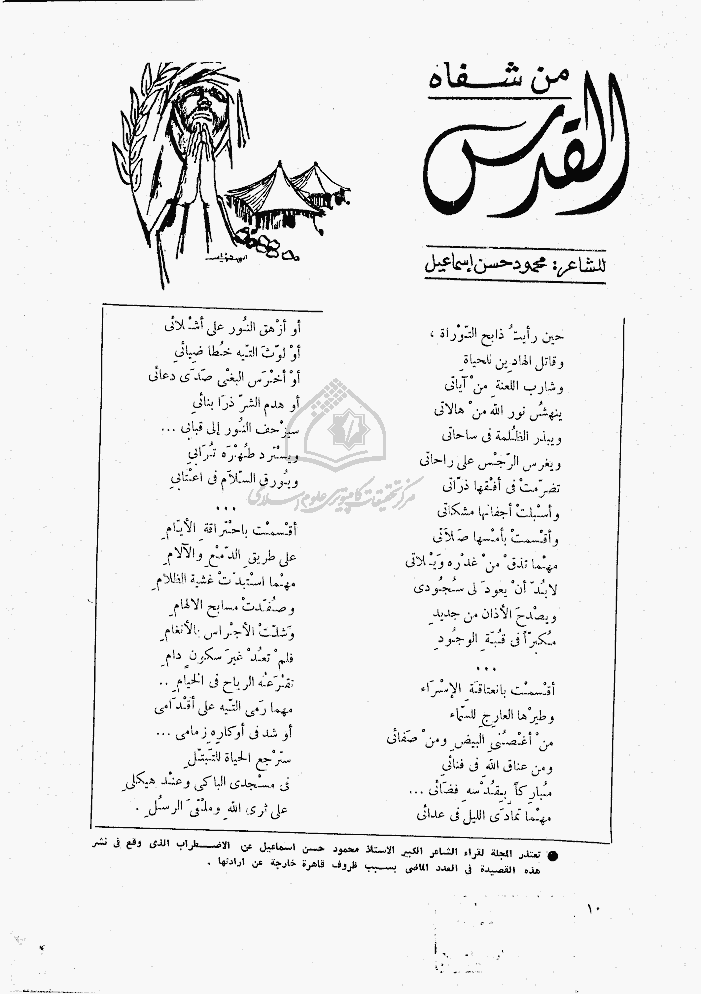 من شفاه
القدس
للشاعر: محمود حسن إسماعيل
حين رأيتُ ذابح التوْراة ،
وقاتل الهادِين للحياةِ
وشارب اللعنةِ منْ آياتى
ينهشُ نور الله منْ هالاتى
ويبذر الظلمة فى ساحاتى
ويغرس الرّجْس على راحاتى
تضرّمتْ فى أفقها ذرّاتى
وأسبلتْ أجفانها مشكاتى
وأقسمتْ بأمْسها صلاتى
مهْما تذقْ منْ غدْره ويْلاتى
لابُدّ أنْ يعودَ لى سُجُودى
ويصْدحَ الأذان من جديدِ
مُكبّراً فى قبّةِ الوجُودِ
• • •
أقسمْت بانعتاقةِ الإسْراء
وطيرْها العارجِ للسَّماء
منْ أغصُنى البيضِ ومنْ صفائى
ومن عناق الله فى فنائى
مُباركاً بقدْسه فضائى ...
مهْما تمادَى الليل فى عدائى
أو أزهق النُور على أشْلائى
أوْ لوّث التّيه خُطا ضيائى
أوْ أخْرس البغْى صَدَى دعائى
أو هدم الشرّ ذرَا بنائى
سيزْحف النُور إلى قبابى ...
ويسْتردّ طُهْرَه تُرابى
ويُورق السّلامُ فى أعْتابى
• • •
أقسمْت باحْتراقة الأيّامِ
على طريقِ الدّمْعِ والآلامِ
مهْما اسْتبدّتْ غشية الظلامِ
وصُفّدتْ مسابح الالهامِ
وشُلّت الأجْراس بالأنغامِ
فلمْ تعُدْ غيرَ سكونٍ دامِ
تقْرعُه الرياح فى الخيامِ ..
مهما رمَى التّيه على أقْدامى
أو شد فى أوكارِه زمامى ...
سترْجع الحياة للتّبتّلِ
فى مسْجدى الباكى وعنْد هيكلى
على ثرى اللهِ وملْقَى الرسُلِ .
● تعتذر المجلة لقراء الشاعر الكبير الاستاذ محمود حسن اسماعيل عن الاضطراب الذى وقع فى نشر
هذه القصيدة فى العدد الماضى بسبب ظروف قاهرة خارجة عن ارادتها .
١٠
مركز تحقيقات كامپيوترى علوم اسلامى